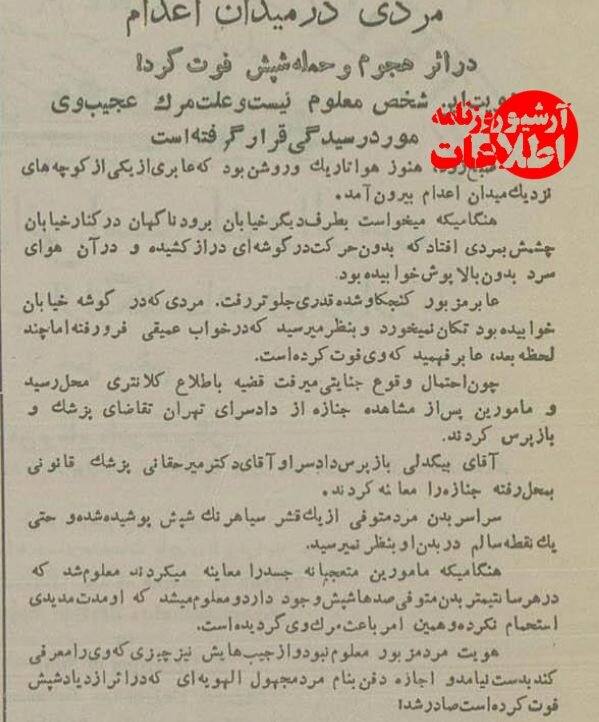 مردی در میدان اعدام
در اثر هجوم و حمله شپش فوت کرد!
هویت این شخص معلوم نیست و علت مرگ عجیب وی
مورد رسیدگی قرار گرفته است
آرشیو روزنامه
اطلاعات
صبح زود، هنوز هوا تاریك و روشن بود که عابری از یکی از کوچه های
نزدیك میدان اعدام بیرون آمد.
هنگامیکه میخواست بطرف دیگر خیابان برود ناگهان در کنار خیابان
چشمش بمردی افتاد که بدون حرکت در گوشه ای دراز کشیده و در آن هوای
سرد بدون بالاپوش خوابیده بود.
عابر مزبور کنجکاو شده قدری جلوتر رفت. مردی که در گوشه خیابان
خوابیده بود تکان نمیخورد و بنظر میرسید که در خواب عمیقی فرو رفته اما چند
لحظه بعد، عابر فهمید که وی فوت کرده است.
چون احتمال وقوع جنایتی میرفت قضیه باطلاع کلانتری محل رسید
و مامورین پس از مشاهده جنازه از دادسرای تهران تقاضای پزشك و
بازپرس کردند.
آقای بیگدلی بازپرس دادسرا و آقای دکتر میرحقانی پزشك قانونی
بمحل رفته جنازه را معاینه کردند.
سراسر بدن مرد متوفی از یك قشر سیاهرنگ شپش پوشیده شده و حتی
یك نقطه سالم در بدن او بنظر نمیرسید.
هنگامیکه مامورین متعجبانه جسد را معاینه میکردند معلوم شد که
در هر سانتیمتر بدن متوفی صدها شپش وجود دارد و معلوم میشد که او مدت مدیدی
استحمام نکرده و همین امر باعث مرگ وی گردیده است.
هویت مرد مزبور معلوم نبود و از جیب هایش نیز چیزی که وی را معرفی
کند بدست نیامد و اجازه دفن بنام مرد مجهول الهویه ای که در اثر ازدیاد شپش
فوت کرده است صادر شد!